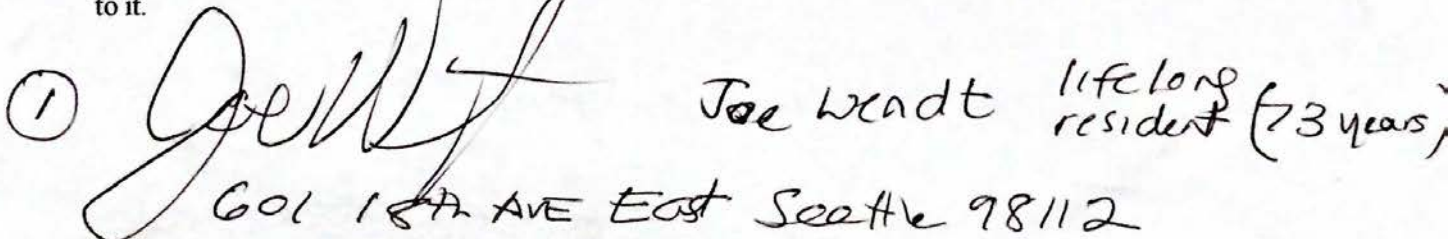 to it.
① Joe Wendt lifelong resident (73 years)
601 18th AVE East Seattle 98112